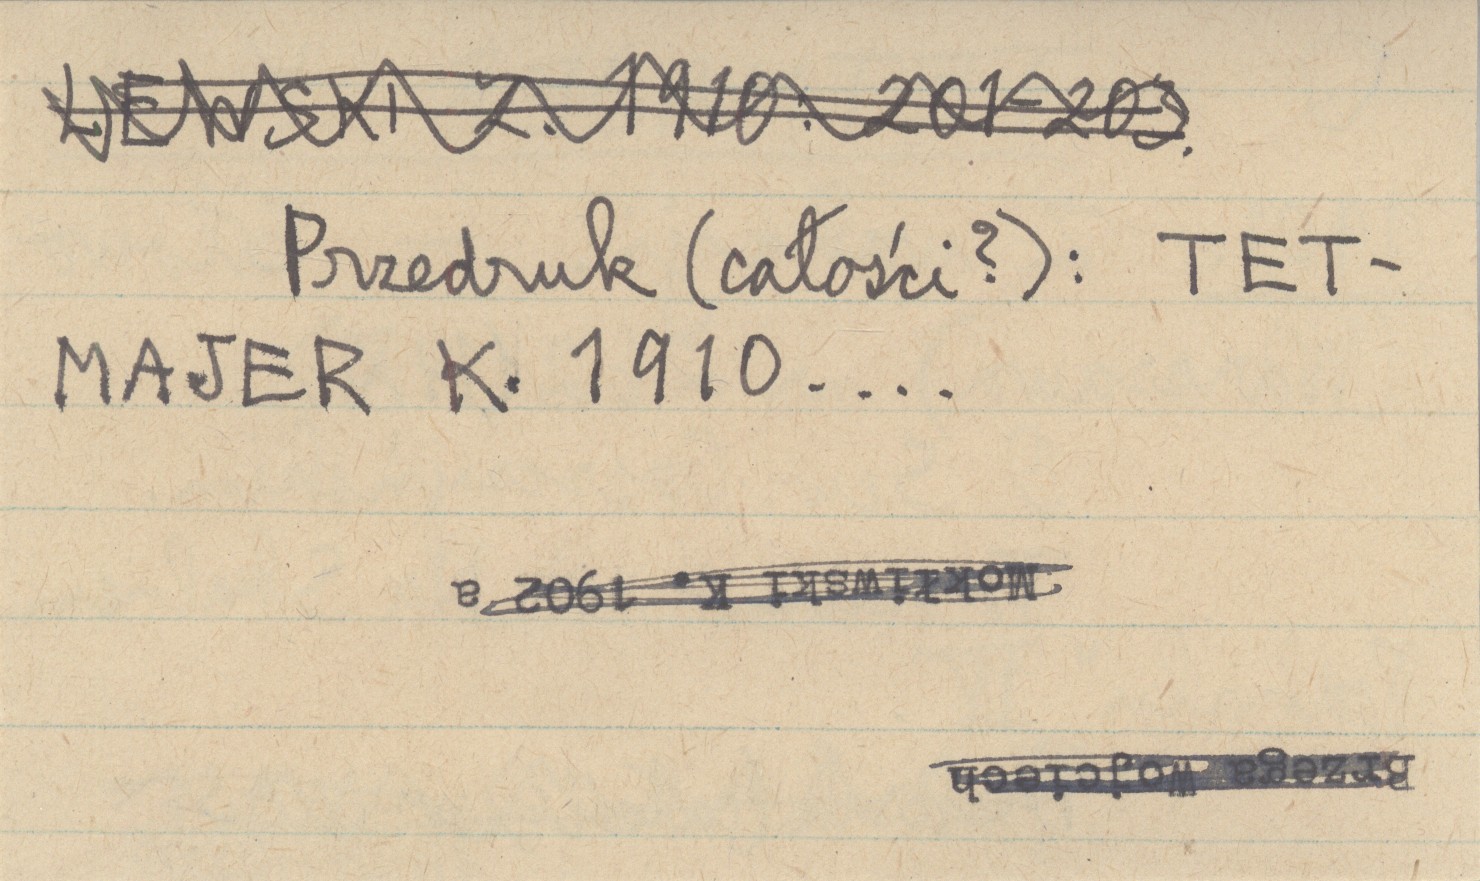 JEWSKI Z. 1910: 201-203.
Przedruk (całości?): TET-
MAJER K. 1910....
Mokłiwski K. 1902 a
Brzega Wojciech